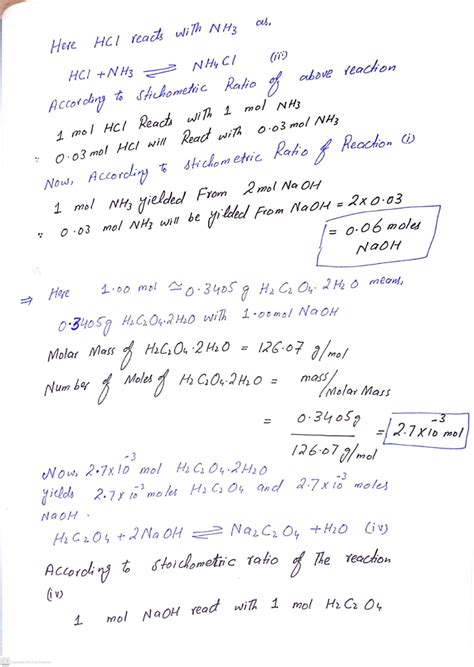 Here HCl reacts with NH3 as,
HCl + NH3 ⇌ NH4Cl (iii)
According to stichometric Ratio of above reaction
1 mol HCl Reacts with 1 mol NH3
∵ 0.03 mol HCl will React with 0.03 mol NH3
Now, According to stichometric Ratio of Reaction (i)
1 mol NH3 yielded From 2 mol NaOH
∵ 0.03 mol NH3 will be yilded From NaOH = 2 x 0.03
= 0.06 moles
NaOH
⇒ Here 1.00 mol ≅ 0.3405 g H2C2O4.2H2O means,
0.3405g H2C2O4.2H2O with 1.00mol NaOH
Molar Mass of H2C2O4.2H2O = 126.07 g/mol
Number of Moles of H2C2O4.2H2O = mass/Molar Mass
= 0.3405g/126.07g/mol = 2.7 x 10^-3 mol
Now, 2.7 x 10^-3 mol H2C2O4.2H2O
yields 2.7 x 10^-3 moles H2C2O4 and 2.7 x 10^-3 moles
NaOH.
H2C2O4 + 2NaOH ⇌ Na2C2O4 + H2O (iv)
According to stoichometric ratio of The reaction
(iv)
1 mol NaOH react with 1 mol H2C2O4